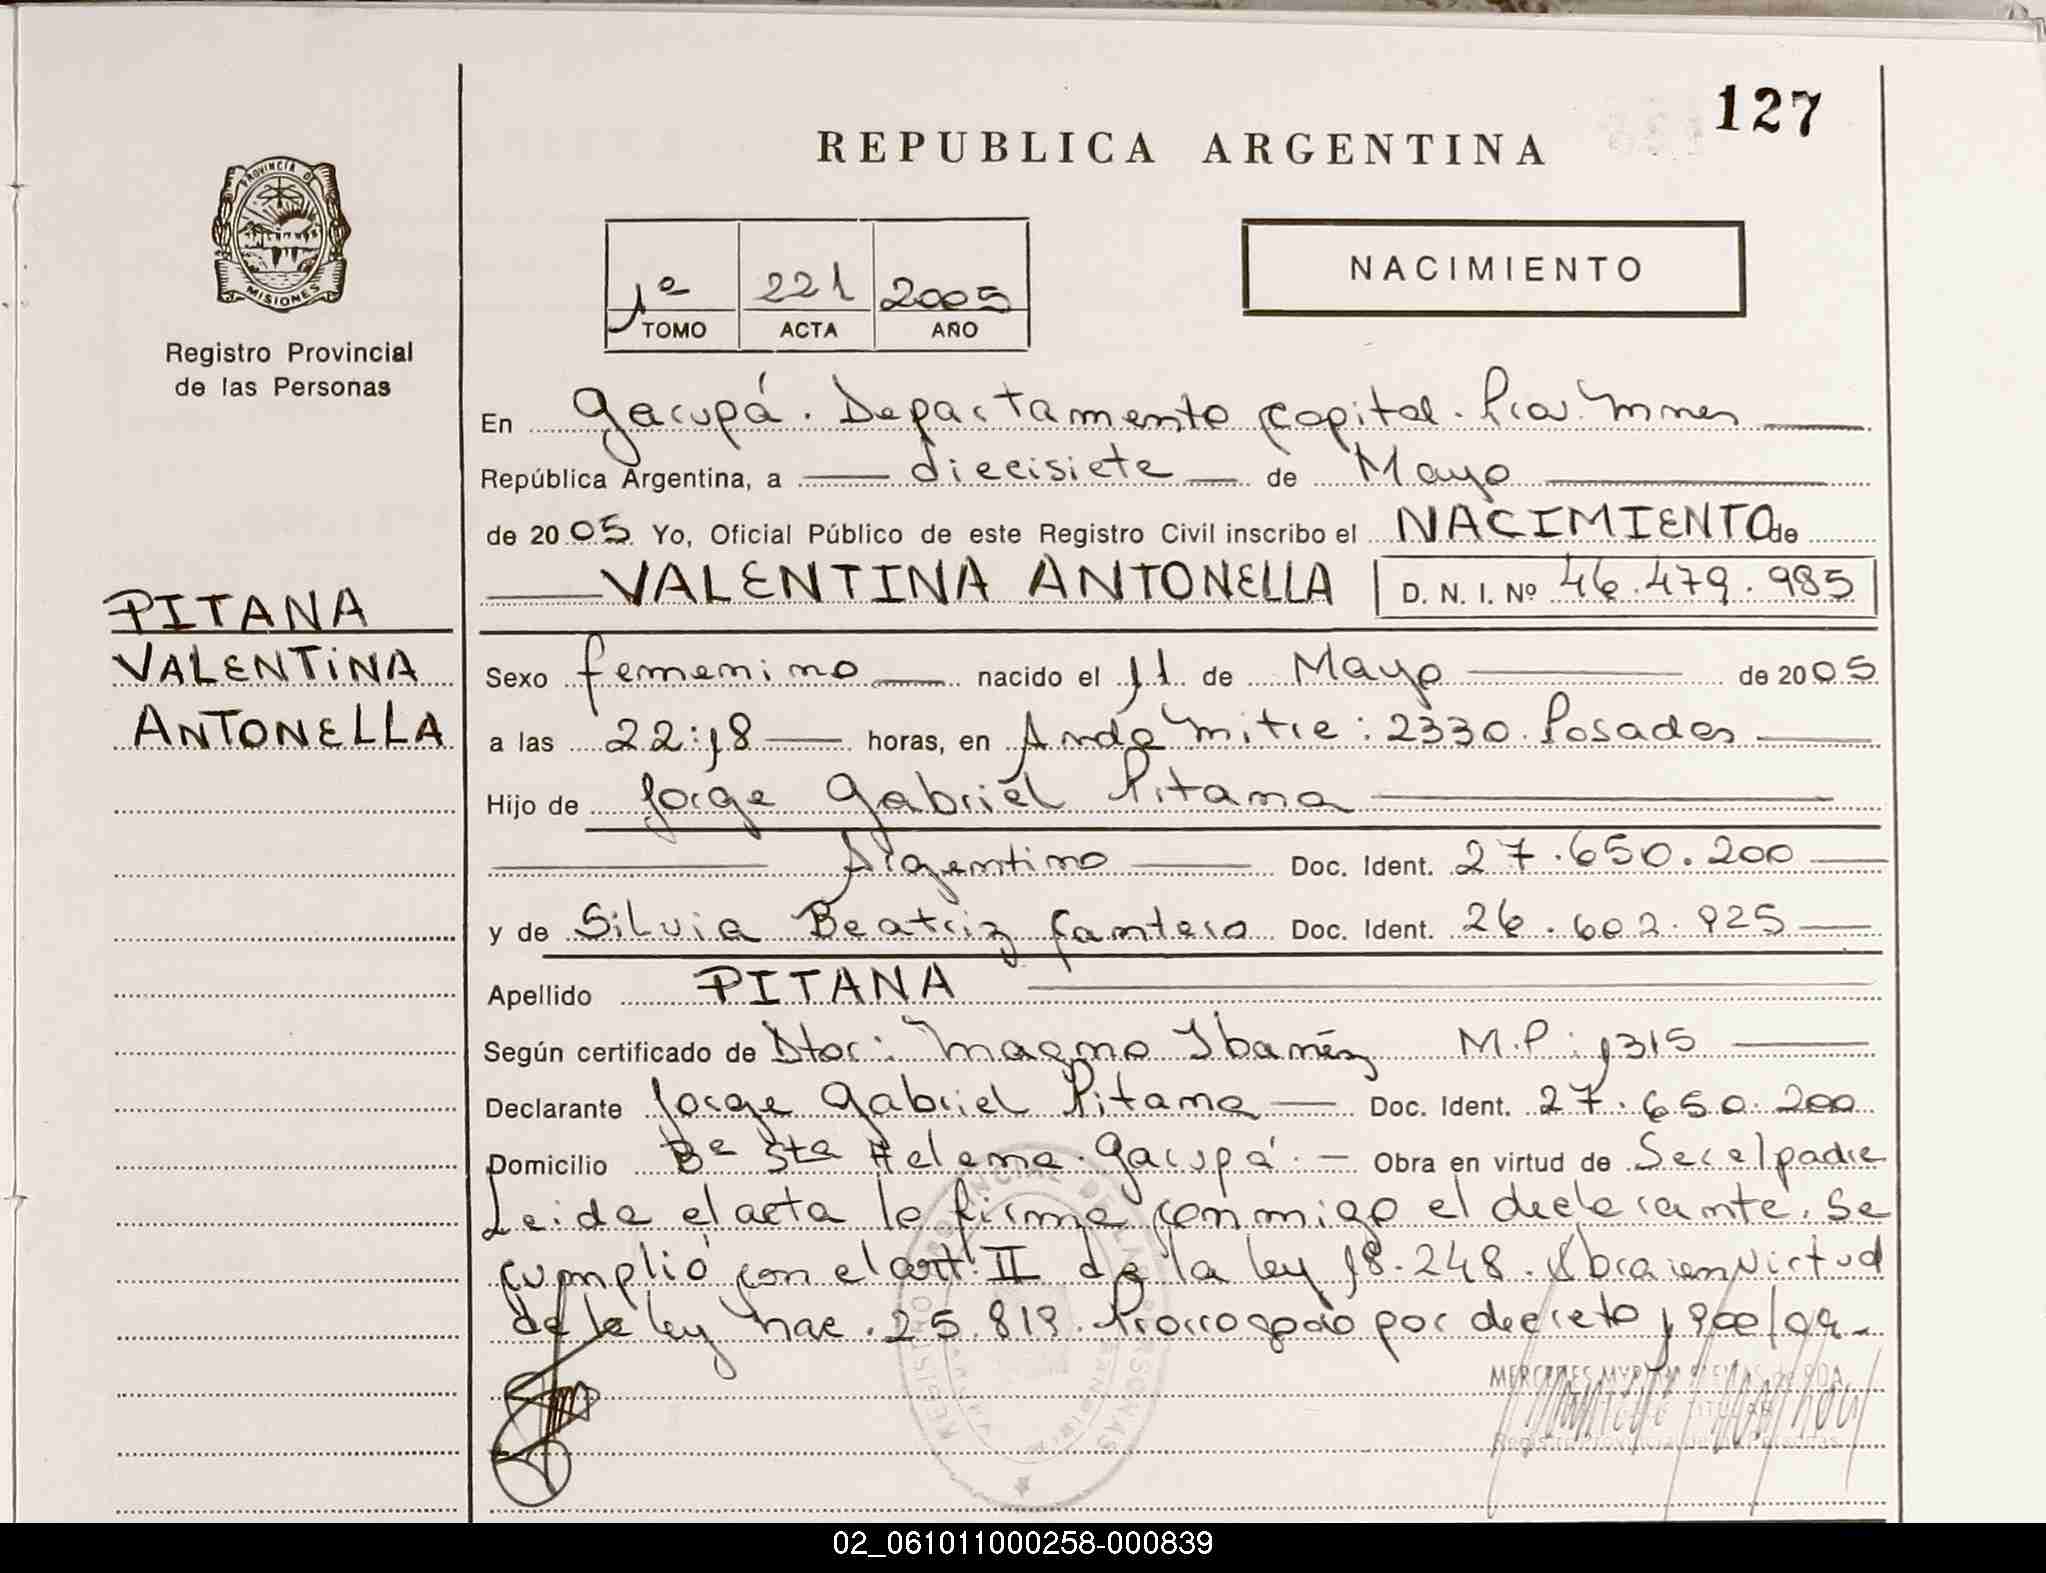 127
REPUBLICA ARGENTINA
PROVINCIA DE
MISIONES
Registro Provincial
de las Personas
1º 221 2005
TOMO ACTA AÑO
NACIMIENTO
En Garupá. Departamento Capital. Prov. Mnes
República Argentina, a diecisiete de Mayo
de 2005 Yo, Oficial Público de este Registro Civil inscribo el NACIMIENTO de
VALENTINA ANTONELLA D. N. I. Nº 46.479.985
PITANA
VALENTINA
ANTONELLA
Sexo femenino nacido el 11 de Mayo de 2005
a las 22:18 horas, en Avda Mitre: 2330. Posadas
Hijo de Jorge Gabriel Pitana
Argentino Doc. Ident. 27.650.200
y de Silvia Beatriz Cantero Doc. Ident. 26.602.925
Apellido PITANA
Según certificado de Dtor: Magno Ibañez M.P: 1315
Declarante Jorge Gabriel Pitana Doc. Ident. 27.650.200
Domicilio Bº Sta Helena. Garupá. Obra en virtud de Ser el padre
Leida el acta la firma conmigo el declarante. Se
cumplió con el art. II de la ley 18.248. Obra en virtud
de la ley nac. 25.819. Prorrogado por decreto 1900/04
MERCEDES MYRIAM de ROA
TITULAR
Registro Provincial de las Personas
02_061011000258-000839